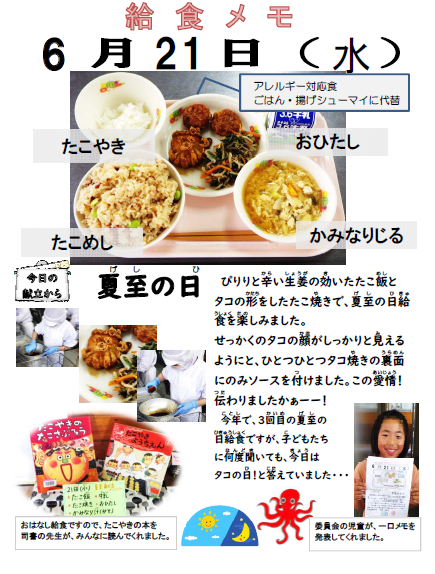 給食メモ
6月21日（水）
アレルギー対応食
ごはん・揚げシューマイに代替
たこやき
おひたし
たこめし
かみなりじる
今日の
献立から
夏至の日
ぴりりと辛い生姜の効いたたこ飯と
タコの形をしたたこ焼きで、夏至の日給
食を楽しみました。
せっかくのタコの顔がしっかりと見える
ようにと、ひとつひとつタコ焼きの裏面
にのみソースを付けました。この愛情！
伝わりましたかぁーー！
今年で、3回目の夏至の
日給食ですが、子どもたち
に何度聞いても、今日は
タコの日！と答えていました・・・
たこやきの
たこさぶろう
たこやき
ようちえん
おはなし給食ですので、たこやきの本を
司書の先生が、みんなに読んでくれました。
委員会の児童が、一口メモを
発表してくれました。